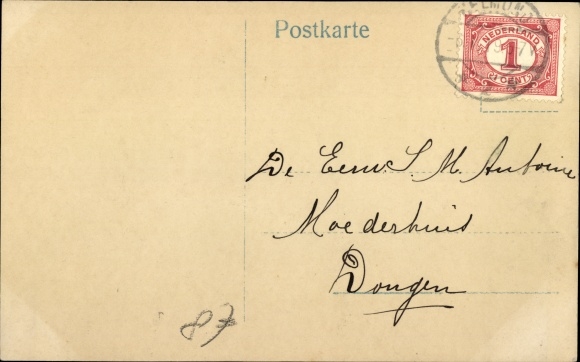 Postkarte
HELMOND
NEDERLAND
1
CENT
De Eerw. S. M. Antoine
Moederhuis
Dongen
87